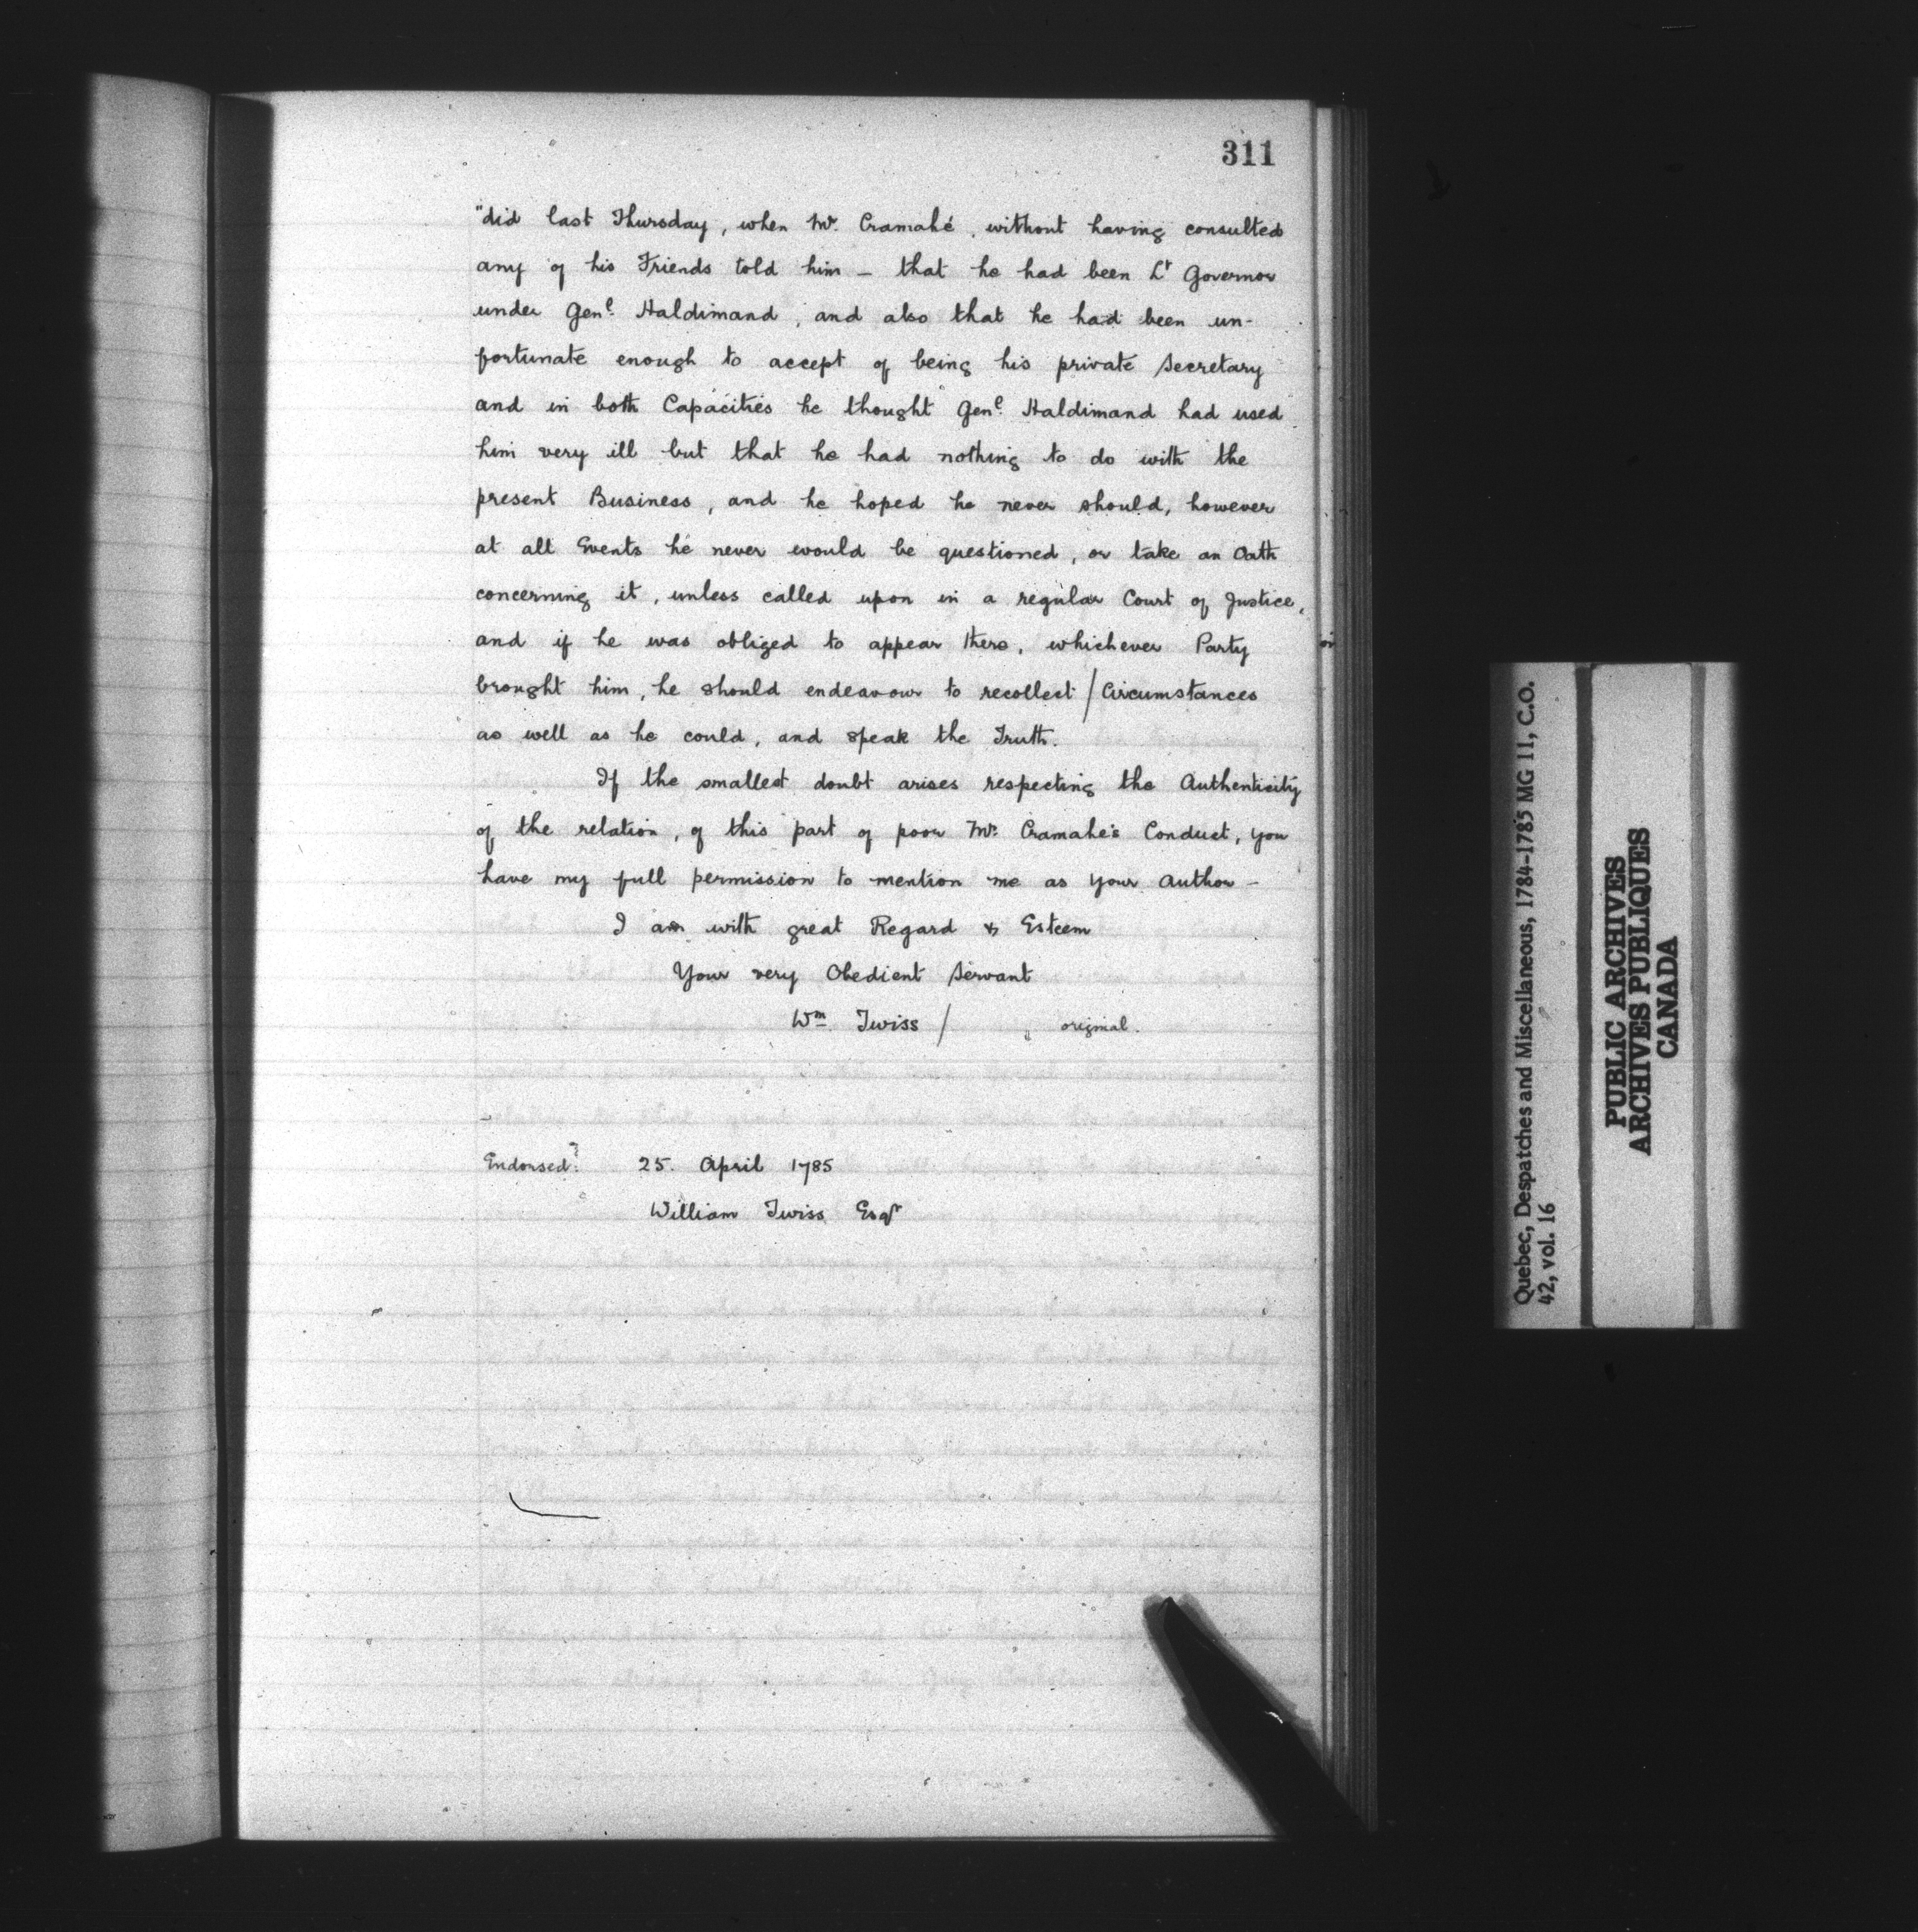 311
"did last Thursday, when Mr. Cramahé, without having consulted
any of his Friends told him — that he had been Lt Governor
under Genl. Haldimand, and also that he had been un-
fortunate enough to accept of being his private Secretary
and in both Capacities he thought Genl. Haldimand had used
him very ill but that he had nothing to do with the
present Business, and he hoped he never should, however
at all Events he never would be questioned, or take an Oath
concerning it, unless called upon in a regular Court of Justice,
and if he was obliged to appear there, whichever Party
brought him, he should endeavour to recollect / Circumstances
as well as he could, and speak the Truth.
If the smallest doubt arises respecting the Authenticity
of the relation, of this part of poor Mr. Cramahe's Conduct, you
have my full permission to mention me as your Author —
I am with great Regard & Esteem
Your very Obedient Servant
Wm. Twiss / original.
Endorsed: 25. April 1785
William Twiss Esqr
Quebec, Despatches and Miscellaneous, 1784-1785 MG 11, C.O.
42, vol. 16
PUBLIC ARCHIVES
ARCHIVES PUBLIQUES
CANADA